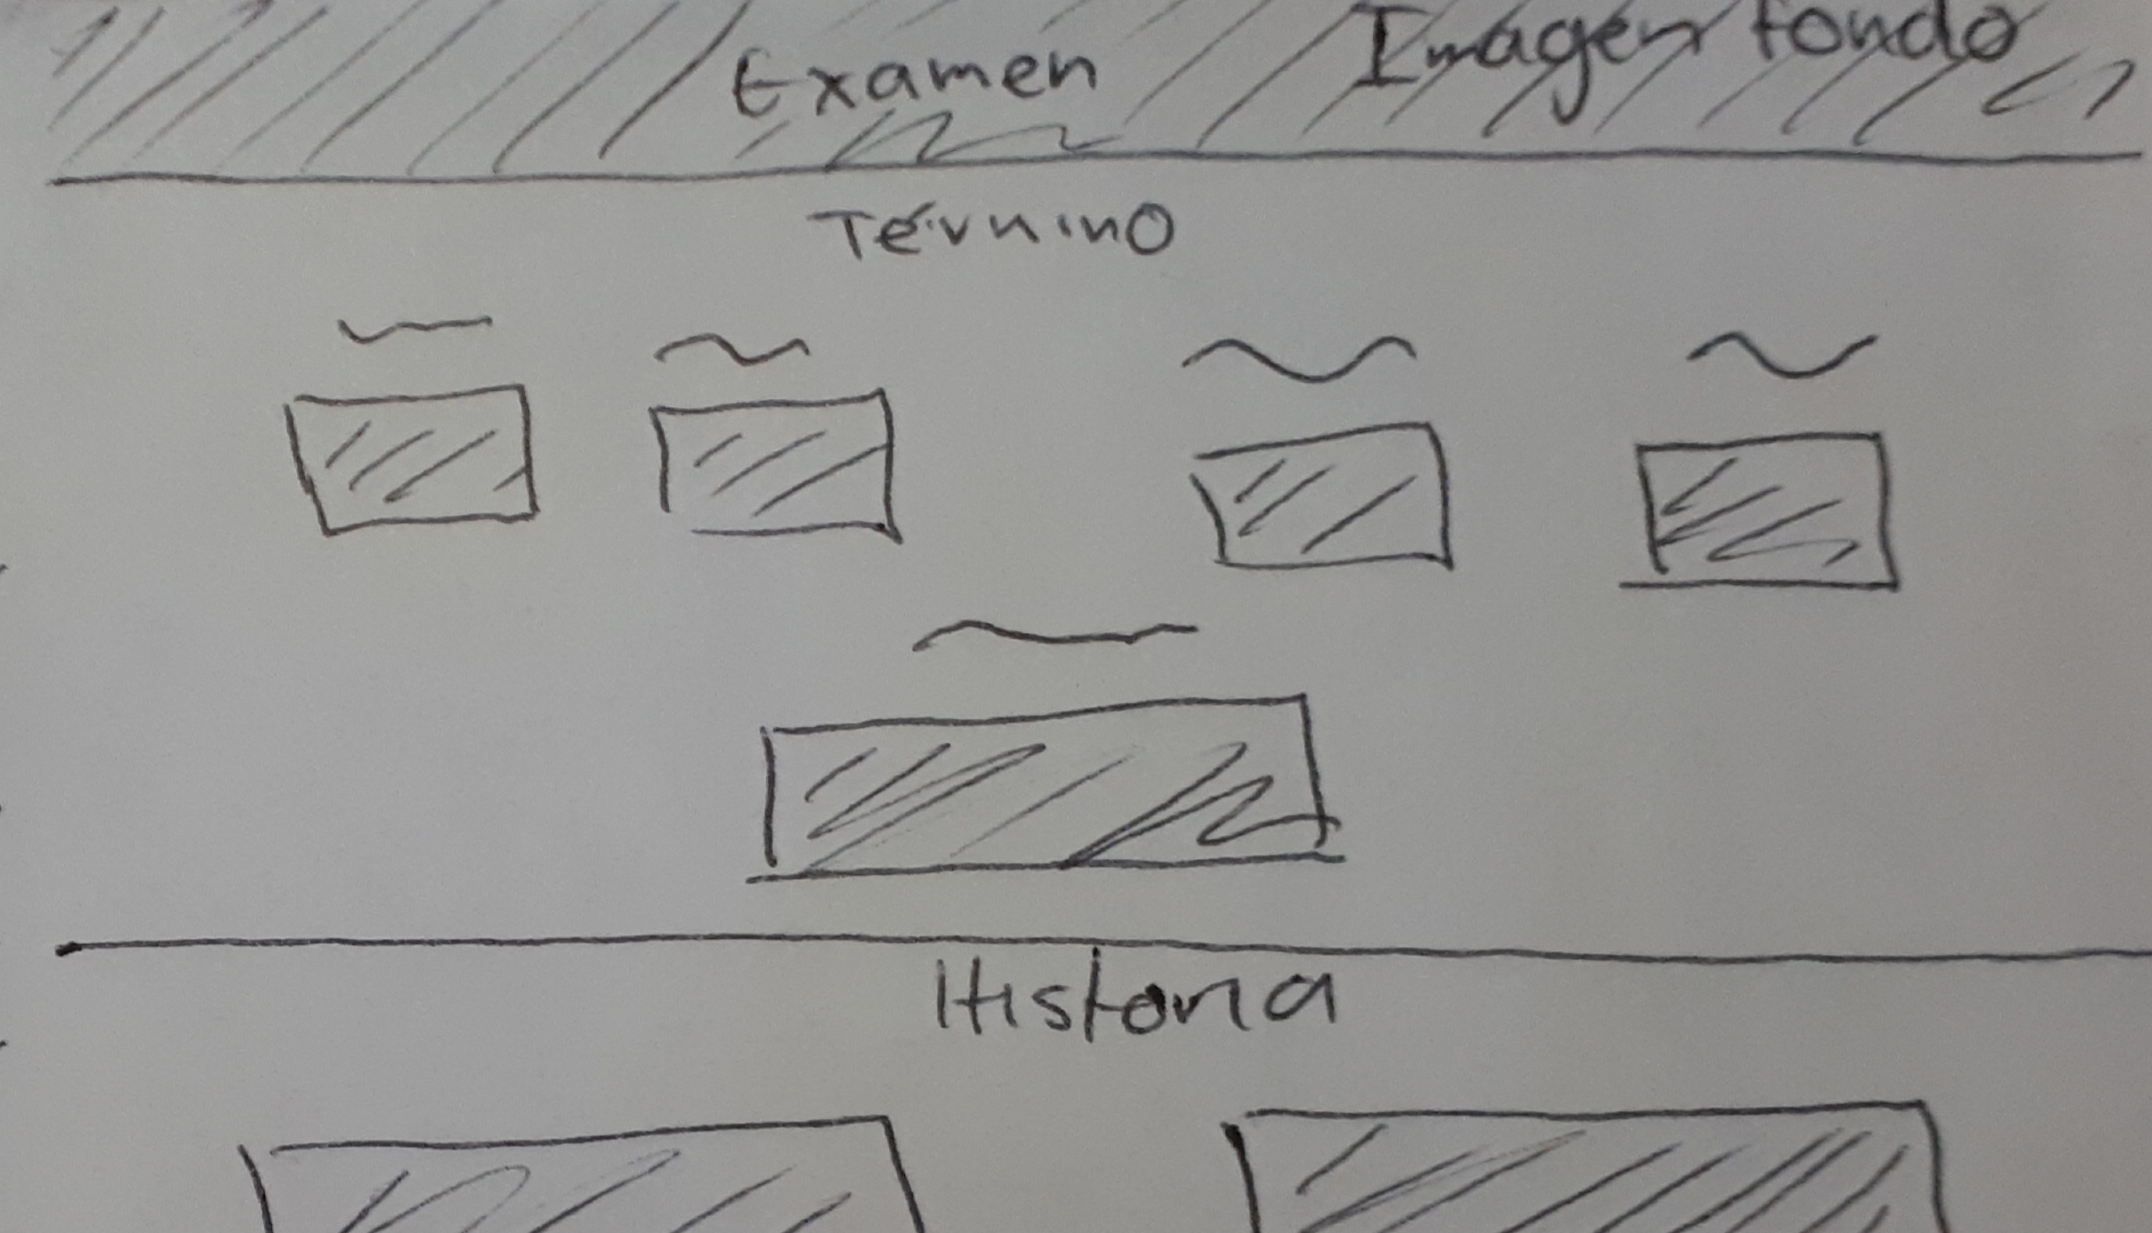 Examen
Imagen fondo
Término
Historia